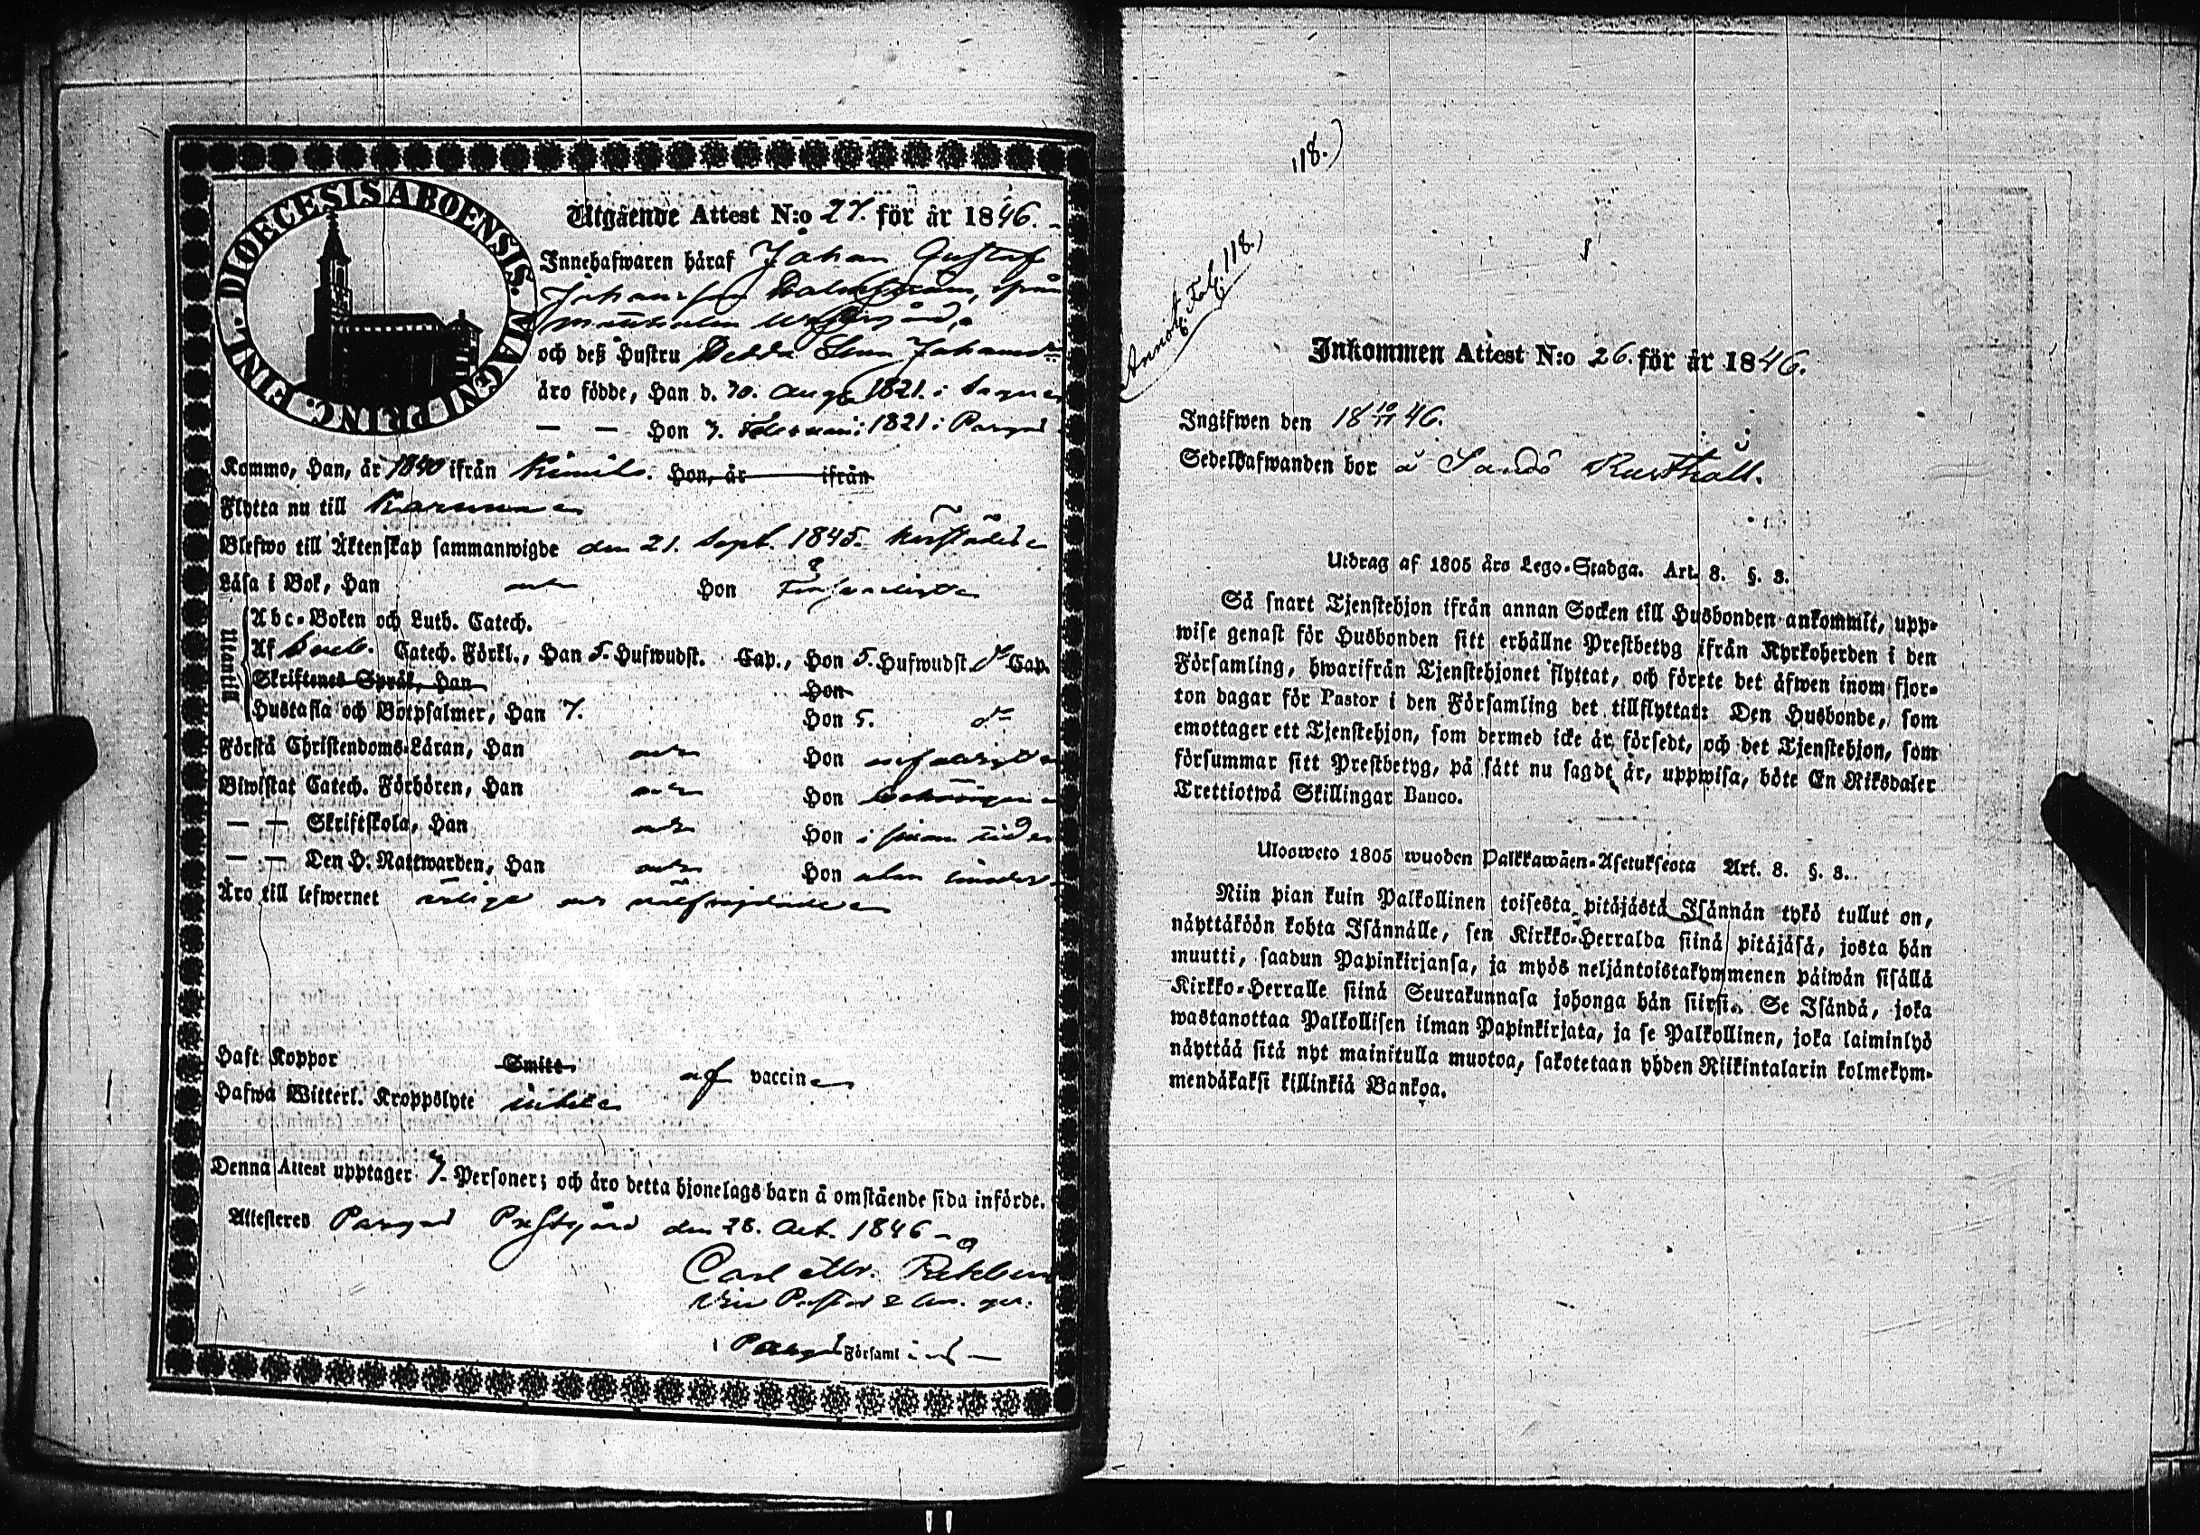 DIOECESIS ABOENSIS. MAGNI PRINC. FINL.
Utgående Attest N:o 27. för år 1846.
Innehafwaren håraf Johan Gustaf
Johansson Malmström, från
och deß Hustru Hedda Lena Johansdr
åro födde, Han d. 30. Aug. 1821. i Sagu
— — Hon 7. Februari 1821 i Pargas
Kommo, Han, år 1840 ifrån Kimito. Hon, år ifrån
Flytta nu till Karuna
Blefwo till Åktenskap sammanwigde den 21. Sept. 1845.
Låsa i Bok, Han Hon
Utantill
Abc-Boken och Luth. Catech.
Af Cateh. Förkl., Han 5. Hufwudst. Cap., Hon 5. Hufwudst. Cap.
Skriftenes Språk, Han Hon
Hustafla och Botpsalmer, Han 7. Hon 5. do
Förstå Christendoms-Låran, Han och Hon
Biwistat Catech. Förhören, Han och Hon
— — Skriftskola, Han och Hon i sinom tid
— — Den H. Nattwarden, Han och Hon
Åro till lefwernet årlige och
Haft Koppor Smitt af vaccin
Hafwa Witterl. Kroppslyte
Denna Attest upptager Personer; och åro detta hjonelags barn å omstående sida införde.
Attesteres Pargas Prestgård den 28. Oct. 1846
Carl
i Pargas Församl
118.)
Annot. Fol. 118.)
Inkommen Attest N:o 26. för år 1846.
Ingifwen den 18 10/11 46.
Sedelhafwanden bor å Sandö Rusthåll.
Utdrag af 1805 års Lego-Stadga. Art. 8. §. 3.
Så snart Tjenstehjon ifrån annan Socken till Husbonden ankommit, upp-
wise genast för Husbonden sitt erhållne Prestbetyg ifrån Kyrkoherden i den
Församling, hwarifrån Tjenstehjonet flyttat, och förete det åfwen inom fjor-
ton dagar för Pastor i den Församling det tillflyttat: Den Husbonde, som
emottager ett Tjenstehjon, som dermed icke år försedt, och det Tjenstehjon, som
försummar sitt Prestbetyg, på sått nu sagdt år, uppwisa, böte En Riksdaler
Trettiotwå Skillingar Banco.
Ulosweto 1805 wuoden Palkkawåen-Asetuksesta Art. 8. §. 3.
Niin pian kuin Palkollinen toisesta pitåjåstå Isånnån tykö tullut on,
nåyttåköön kohta Isånnålle, sen Kirkko-Herralda siinå pitåjåså, josta hån
muutti, saadun Papinkirjansa, ja myös neljåntoistakymmenen påiwån sisållå
Kirkko-Herralle siinå Seurakunnasa johonga hån siirsi. Se Isåndå, joka
wastanottaa Palkollisen ilman Papinkirjata, ja se Palkollinen, joka laiminlyö
nåyttåå sitå nyt mainitulla muotoa, sakotetaan yhden Riikintalarin kolmekym-
mendåkaksi killinkiå Bankoa.